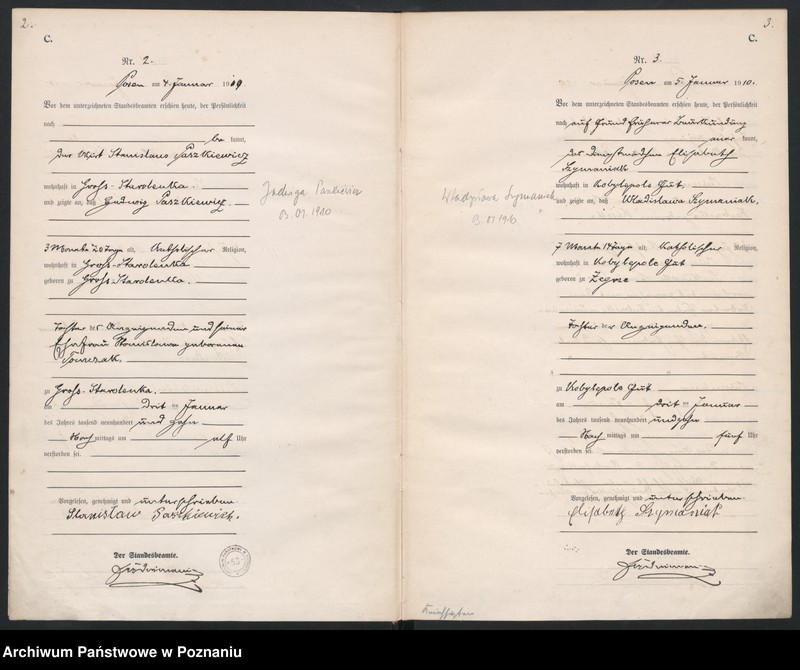 2.
C.
Nr. 2.
Posen am 4. Januar 19
Vor dem unterzeichneten Standesbeamten erschien heute, der Persönlichkeit
nach
be kannt,
der Stanislaus Paszkiewicz
wohnhaft in Groß-Starolenka.
und zeigte an, daß Hedwig Paszkiewicz,
3 Monate 20 Tage alt, Katholischer Religion,
wohnhaft in Groß-Starolenka
geboren zu Groß-Starolenka.
Tochter des Anzeigenden und seiner
Ehefrau Stanislawa geborenen
Tomczak.
zu Groß-Starolenka.
am drit ten Januar
des Jahres tausend neunhundert und zehn
Nach mittags um elf Uhr
verstorben sei.
Vorgelesen, genehmigt und unterschrieben
Stanisław Paszkiewicz.
Der Standesbeamte.
Jadwiga Paszkiewicz
3.01.1910
3.
C.
Nr. 3.
Posen am 5. Januar 1910.
Vor dem unterzeichneten Standesbeamten erschien heute, der Persönlichkeit
nach auf Grund früherer Beurkundung
aner kannt,
das Dienstmädchen Elisabeth
Szymaniak
wohnhaft in Kobylepole Gut
und zeigte an, daß Wladislawa Szymaniak,
7 Monate 17 Tage alt, Katholischer Religion,
wohnhaft in Kobylepole Gut
geboren zu Żegrze
Tochter der Anzeigenden.
zu Kobylepole Gut
am drit ten Januar
des Jahres tausend neunhundert und zehn
Nach mittags um fünf Uhr
verstorben sei.
Vorgelesen, genehmigt und unterschrieben
Elisabetz Szymaniak
Der Standesbeamte.
Władysława Szymaniak
3.01.1910
Archiwum Państwowe w Poznaniu